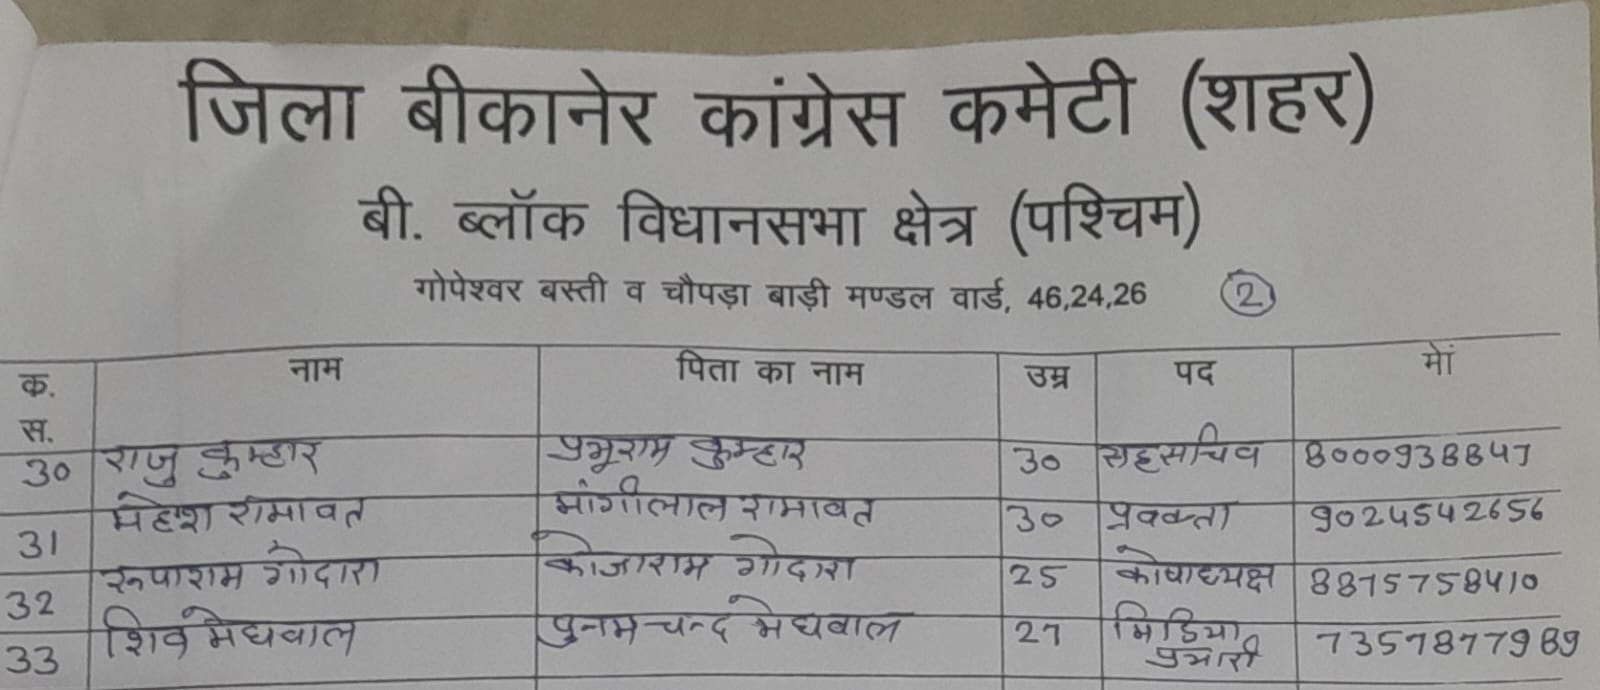 जिला बीकानेर कांग्रेस कमेटी (शहर)
बी. ब्लॉक विधानसभा क्षेत्र (पश्चिम)
गोपेश्वर बस्ती व चौपड़ा बाड़ी मण्डल वार्ड, 46,24,26 2
क. स. नाम पिता का नाम उम्र पद मों
30 राजु कुम्हार प्रभूराम कुम्हार 30 सहसचिव 8000938847
31 महेश रामावत मांगीलाल रामावत 30 प्रवक्ता 9024542656
32 रूपाराम गोदारा कोजाराम गोदारा 25 कोषाध्यक्ष 8875758410
33 शिव मेघवाल पुनमचन्द मेघवाल 27 मिडिया प्रभारी 7357877989